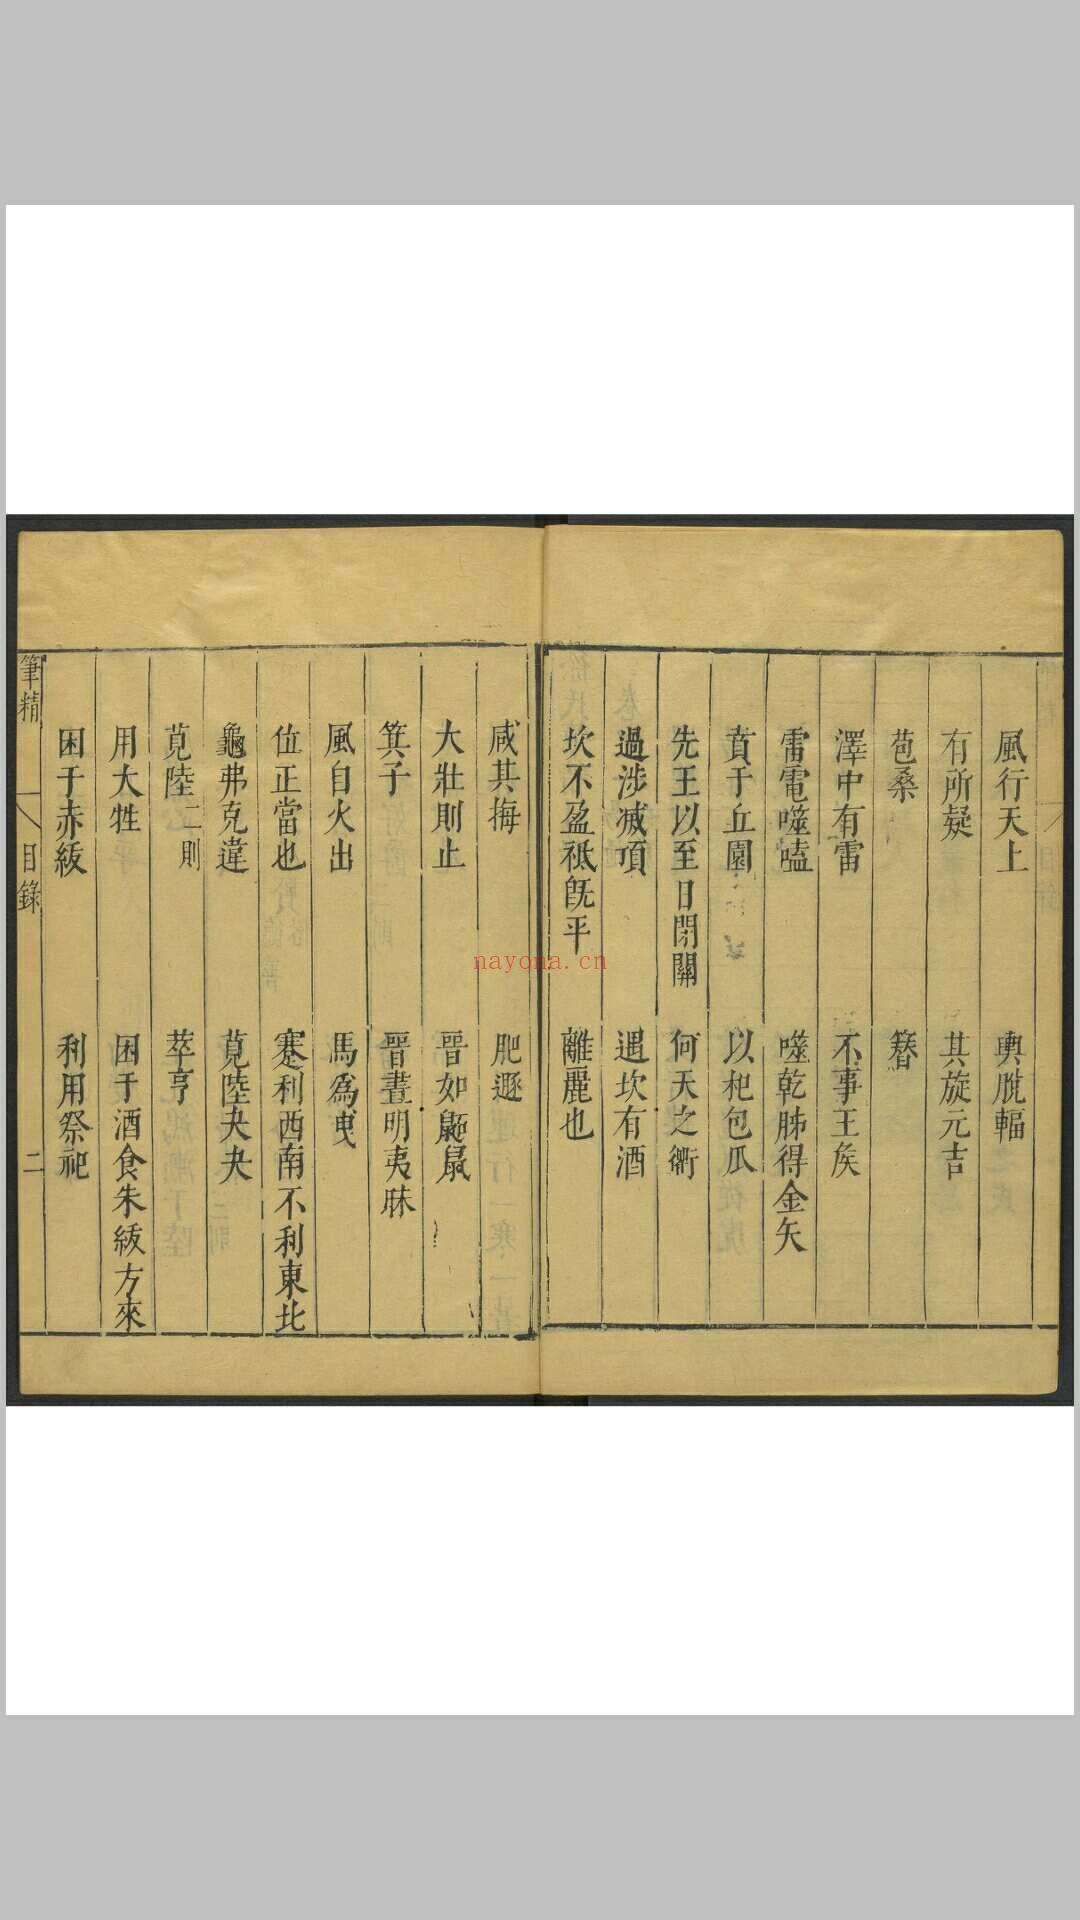 風行天上　輿脫輻
有所疑　其旋元吉
苞桑　簪
澤中有雷　不事王侯
雷電噬嗑　噬乾胏得金矢
賁于丘園　以杞包瓜
先王以至日閉關　何天之衢
過涉滅頂　遇坎有酒
坎不盈祗旣平　離麗也
咸其脢　肥遯
大壯則止　晉如鼫鼠
箕子　晉晝明夷昧
風自火出　馬爲曳
位正當也　蹇利西南不利東北
龜弗克違　莧陸夬夬
莧陸二則　萃亨
用大牲　困于酒食朱紱方來
困于赤紱　利用祭祀
筆精　目錄　二
nayona.cn